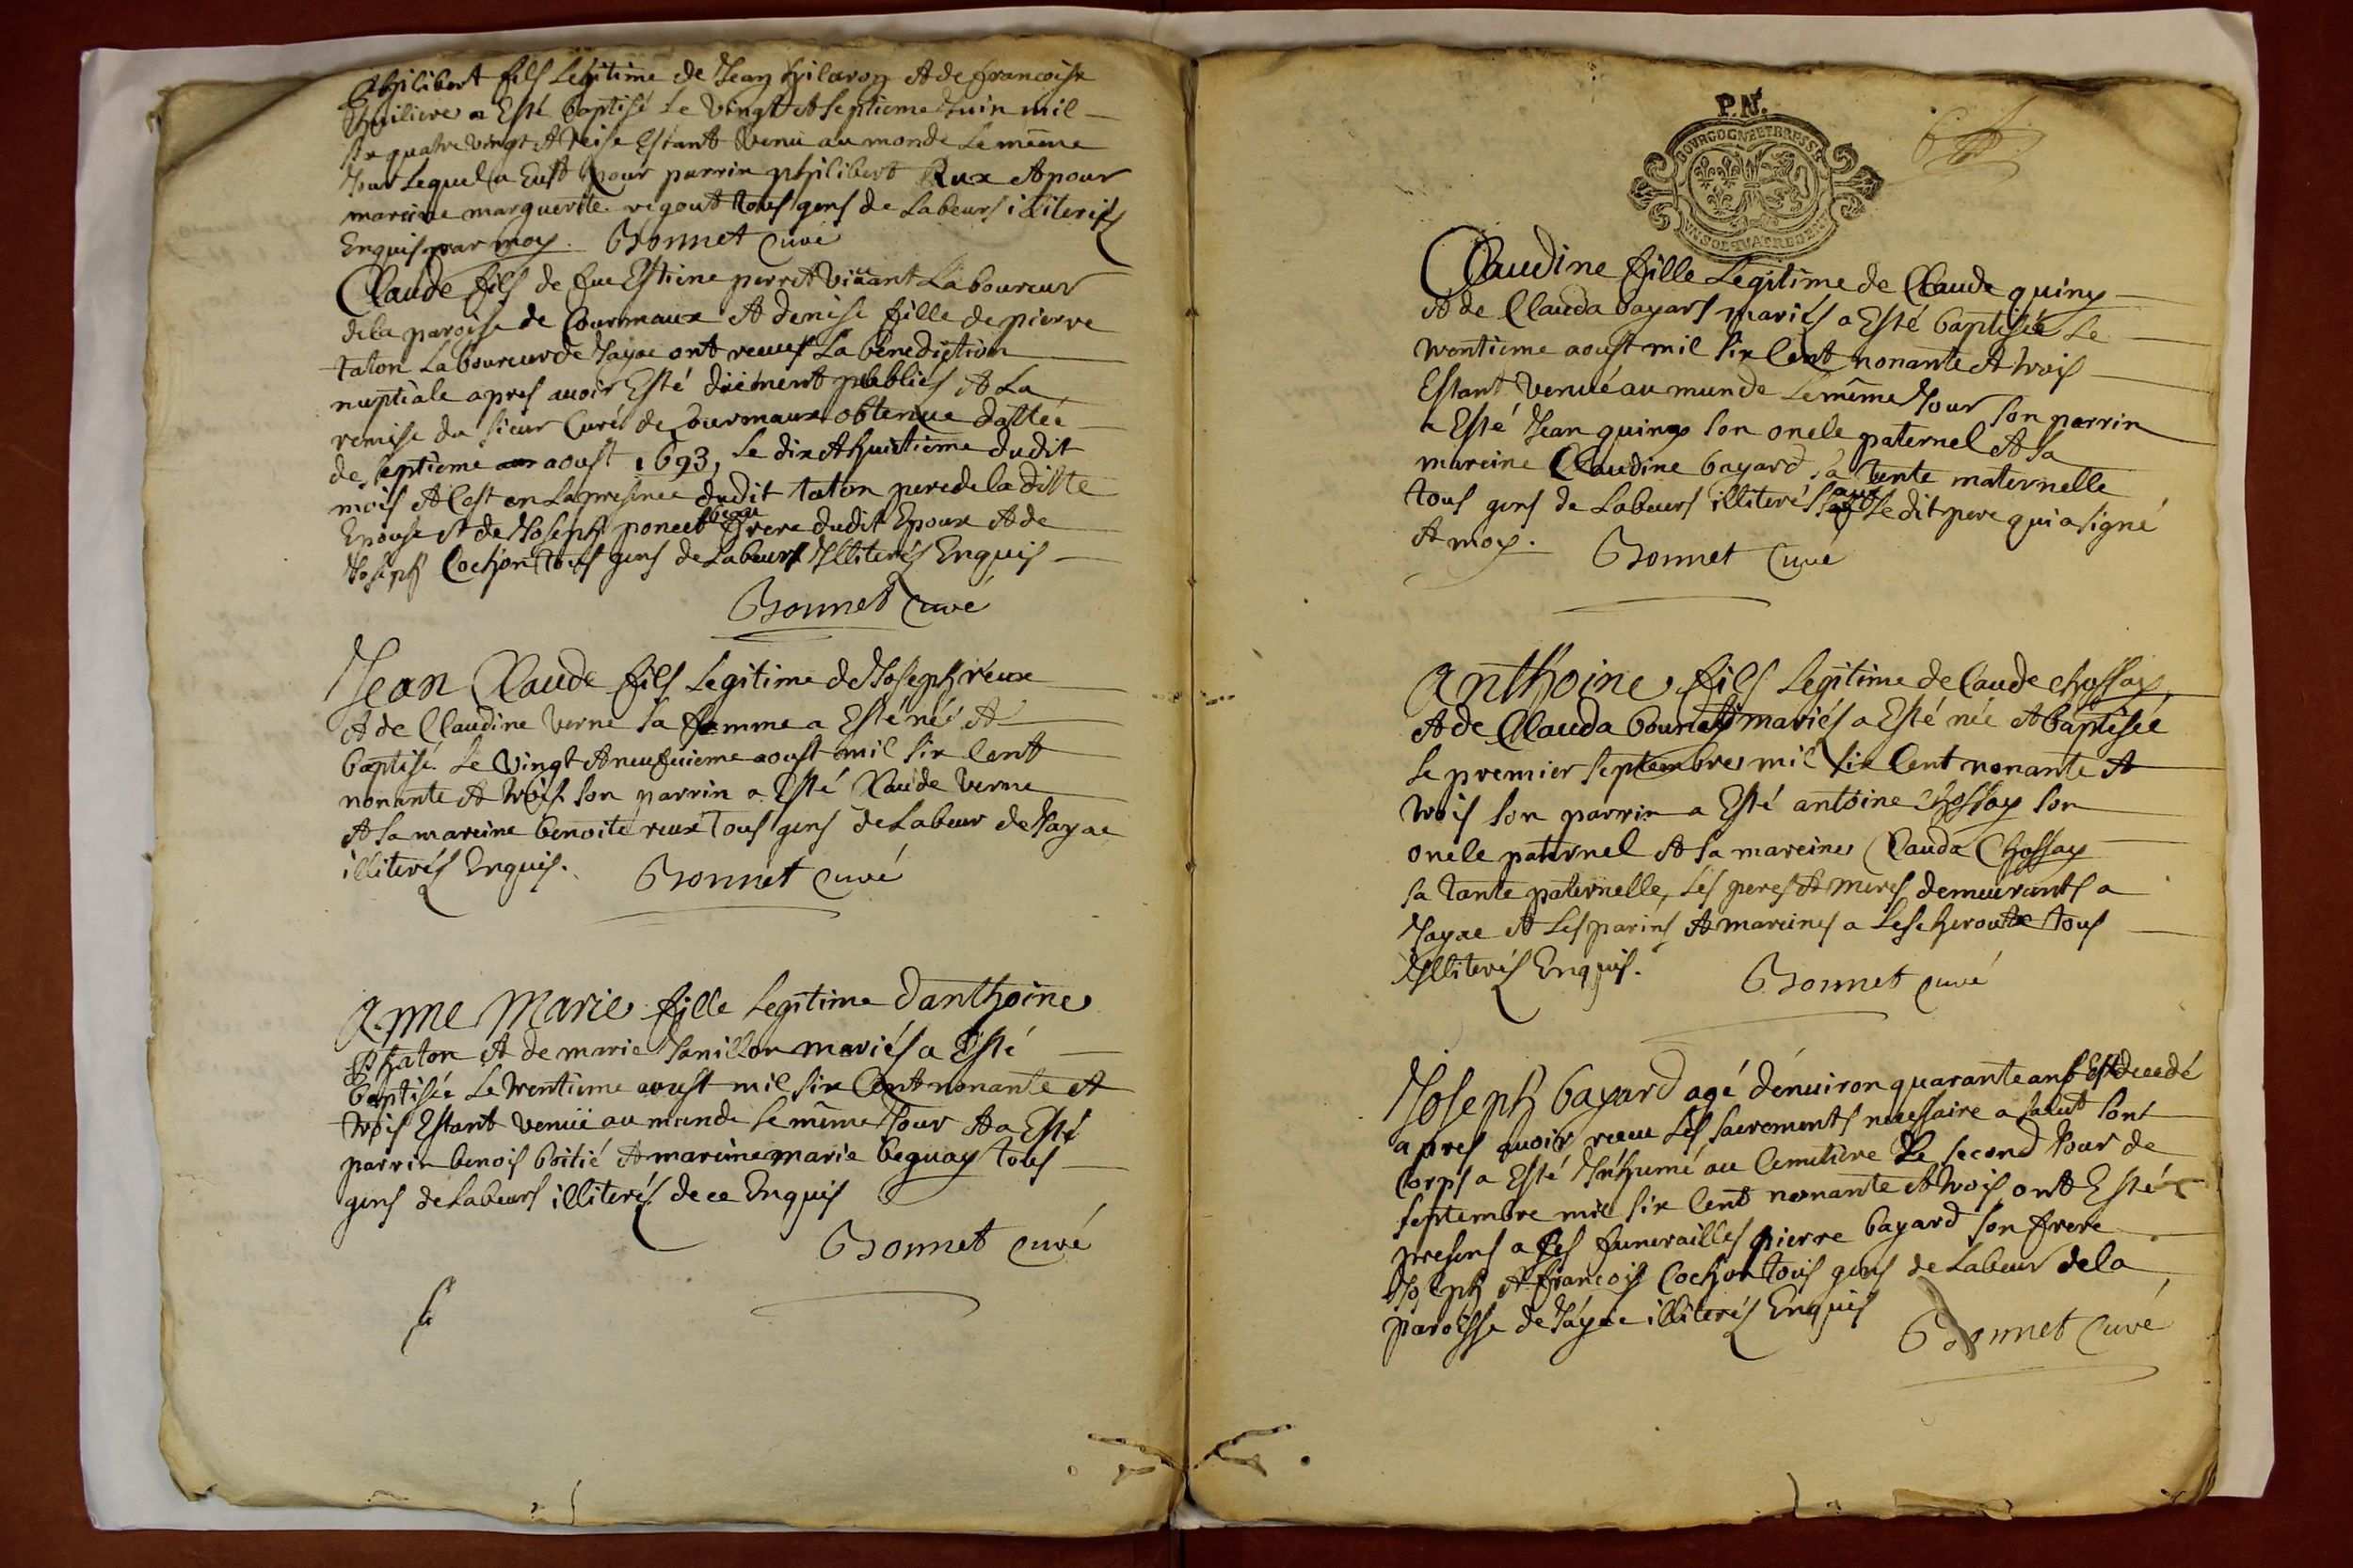 philibert fils legitime de Jean hilaron et de francoise
a Esté baptisé le vingt et septieme Juin mil
six quatre vingt et treise Estant venu au monde le mesme
Jour lequel a Eust pour parrin philibert Rux et pour
mareine marguerite rigout tous gens de labeurs iliterés
Enquis par moy. Bonnet curé
Claude fils de feu Estiene perret vivant laboureur
de la paroisse de Courmaux et denise fille de pierre
taton laboureur de Jayac ont receus la benediction
nuptiale apres avoir Esté düement publiés et la
remise du sieur Curé de Courmaux obtenue dattée
de septieme aoust 1693, le dix et huictieme dudit
mois et c'est en la presence dudit taton pere de la ditte
Epouse et de Joseph poncet beau frere dudit Epoux et de
Joseph Cochon tous gens de labeurs Illiterés Enquis
Bonnet curé
Jean Claude fils legitime de Joseph reux
et de Claudine verne sa femme a Esté né et
baptisé le vingt et neufuieme aoust mil six cent
nonante et trois son parrin a Esté Claude verne
et sa mareine benoite reux tous gens de labeur de Jayac
illiterés Enquis. Bonnet curé
Anne Marie fille legitime d'anthoine
thaton et de marie Janillon mariés a Esté
baptisée le trentieme aoust mil six Cent nonante et
trois Estant venüe au munde le même Jour et a Esté
parrin benois boitié et mareine marie beguay tous
gens de labeurs illiterés de ce Enquis
Bonnet curé
P.N.
BOVRGOGNE ET BRESSE
Claudine fille legitime de Claude quiny
et de Clauda bayard mariés a Esté baptisée le
trentieme aoust mil six Cent nonante et trois
Estant venüe au munde le même Jour son parrin
a Esté Jean quiny son oncle paternel et sa
mareine Claudine bayard sa tente maternelle
tous gens de labeurs illiterés sauf le dit pere qui a signé
et moy. Bonnet Curé
Anthoine fils legitime de Claude chossay
et de Clauda mariés a Esté née et baptisée
le premier septembre mil six Cent nonante et
trois son parrin a Esté antoine chossay son
oncle paternel et sa mareine Clauda Chossay
sa tante paternelle, les peres et meres demeurants a
Jayac et les parins et mareines a tous
Illiterés Enquis. Bonnet curé
Joseph bayard agé d'enuiron quarante ans Est decedé
apres auoir receu les sacrements necessaire a salut son
Corps a Esté Inhumé au Cemetiere le second Jour de
septembre mil six cent nonante et trois ont Esté
presens a ses funerailles pierre bayard son frere
Joseph et francois Cochon tous gens de labeur de la
paroisse de Jayac illiterés Enquis
Bonnet Curé